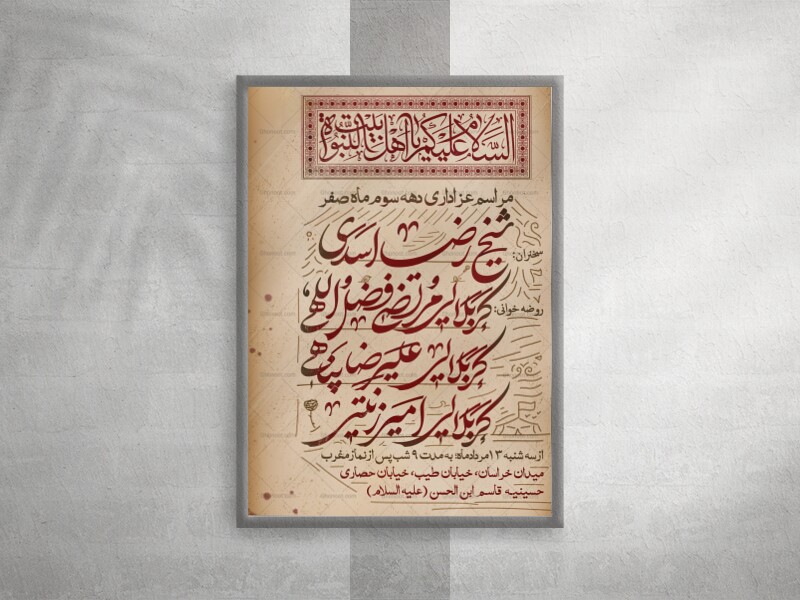 السلام علیکم یا اهل بیت النبوة
مراسم عزاداری دهه سوم ماه صفر
سخنران:
شیخ رضا اسدی
روضه خوانی:
کربلایی مرتضی فضل اللهی
کربلایی علیرضا پناهی
کربلایی امیر زینتی
از سه شنبه ۱۳ مردادماه؛ به مدت ۹ شب پس از نماز مغرب
میدان خراسان، خیابان طیب، خیابان حصاری
حسینیه قاسم ابن الحسن (علیه السلام)